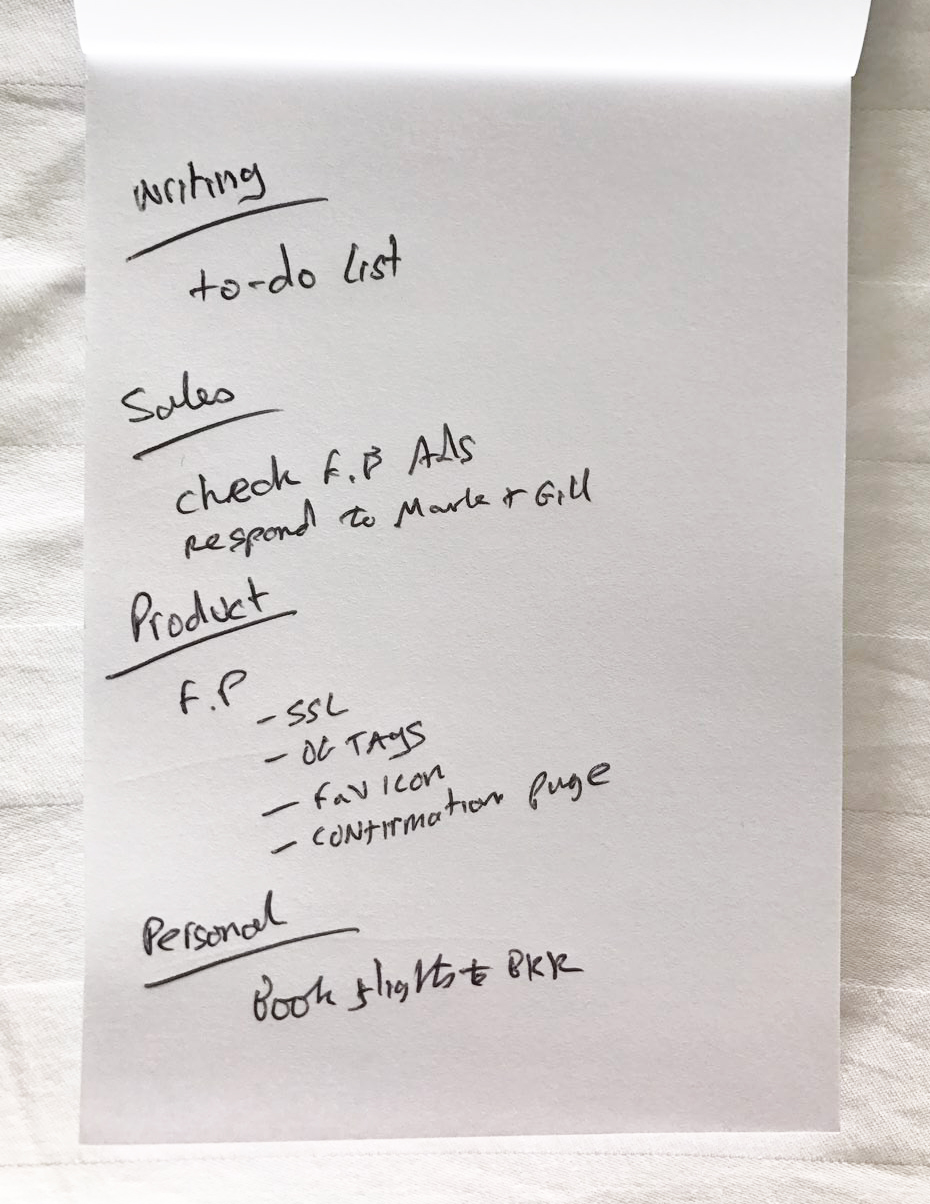 Writing
to-do list
Sales
check F.B Ads
respond to Mark + Gill
Product
F.P
- SSL
- OG TAgS
- FavIcon
- Confirmation page
Personal
Book flights to BKK